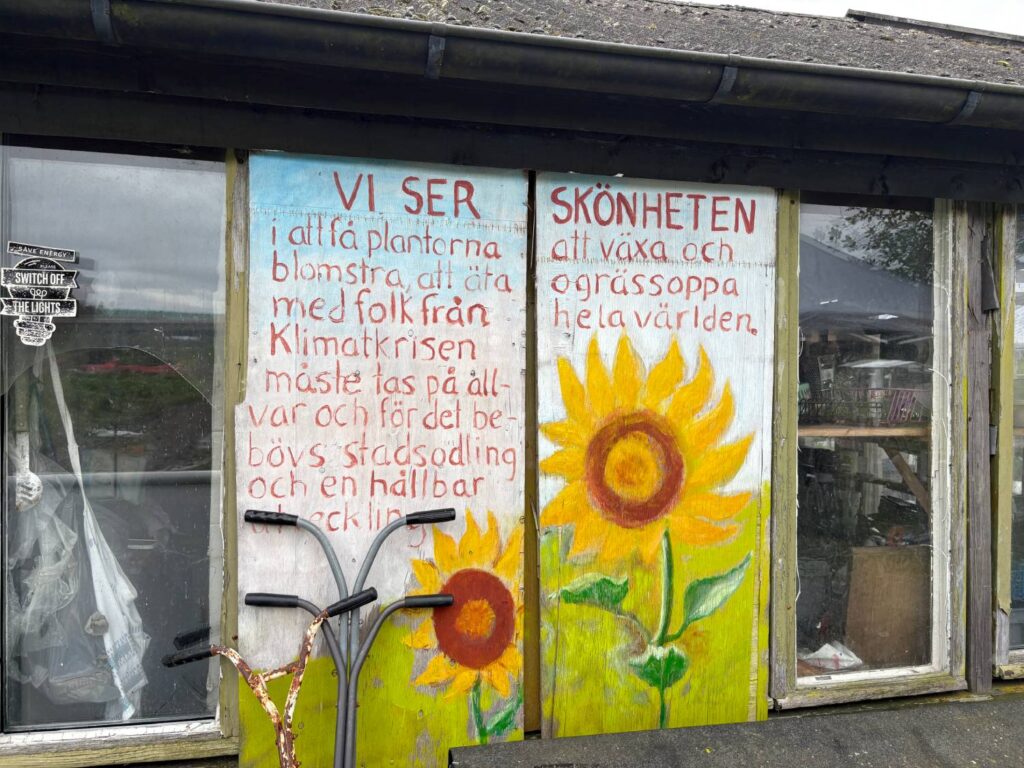 SAVE ENERGY
PLEASE
SWITCH OFF
THE LIGHTS
VI SER
i att få plantorna
blomstra, att äta
med folk från
Klimatkrisen
måste tas på all-
var och för det be-
bövs stadsodling
och en hållbar
utveckling
SKÖNHETEN
att växa och
ogrässoppa
hela världen.